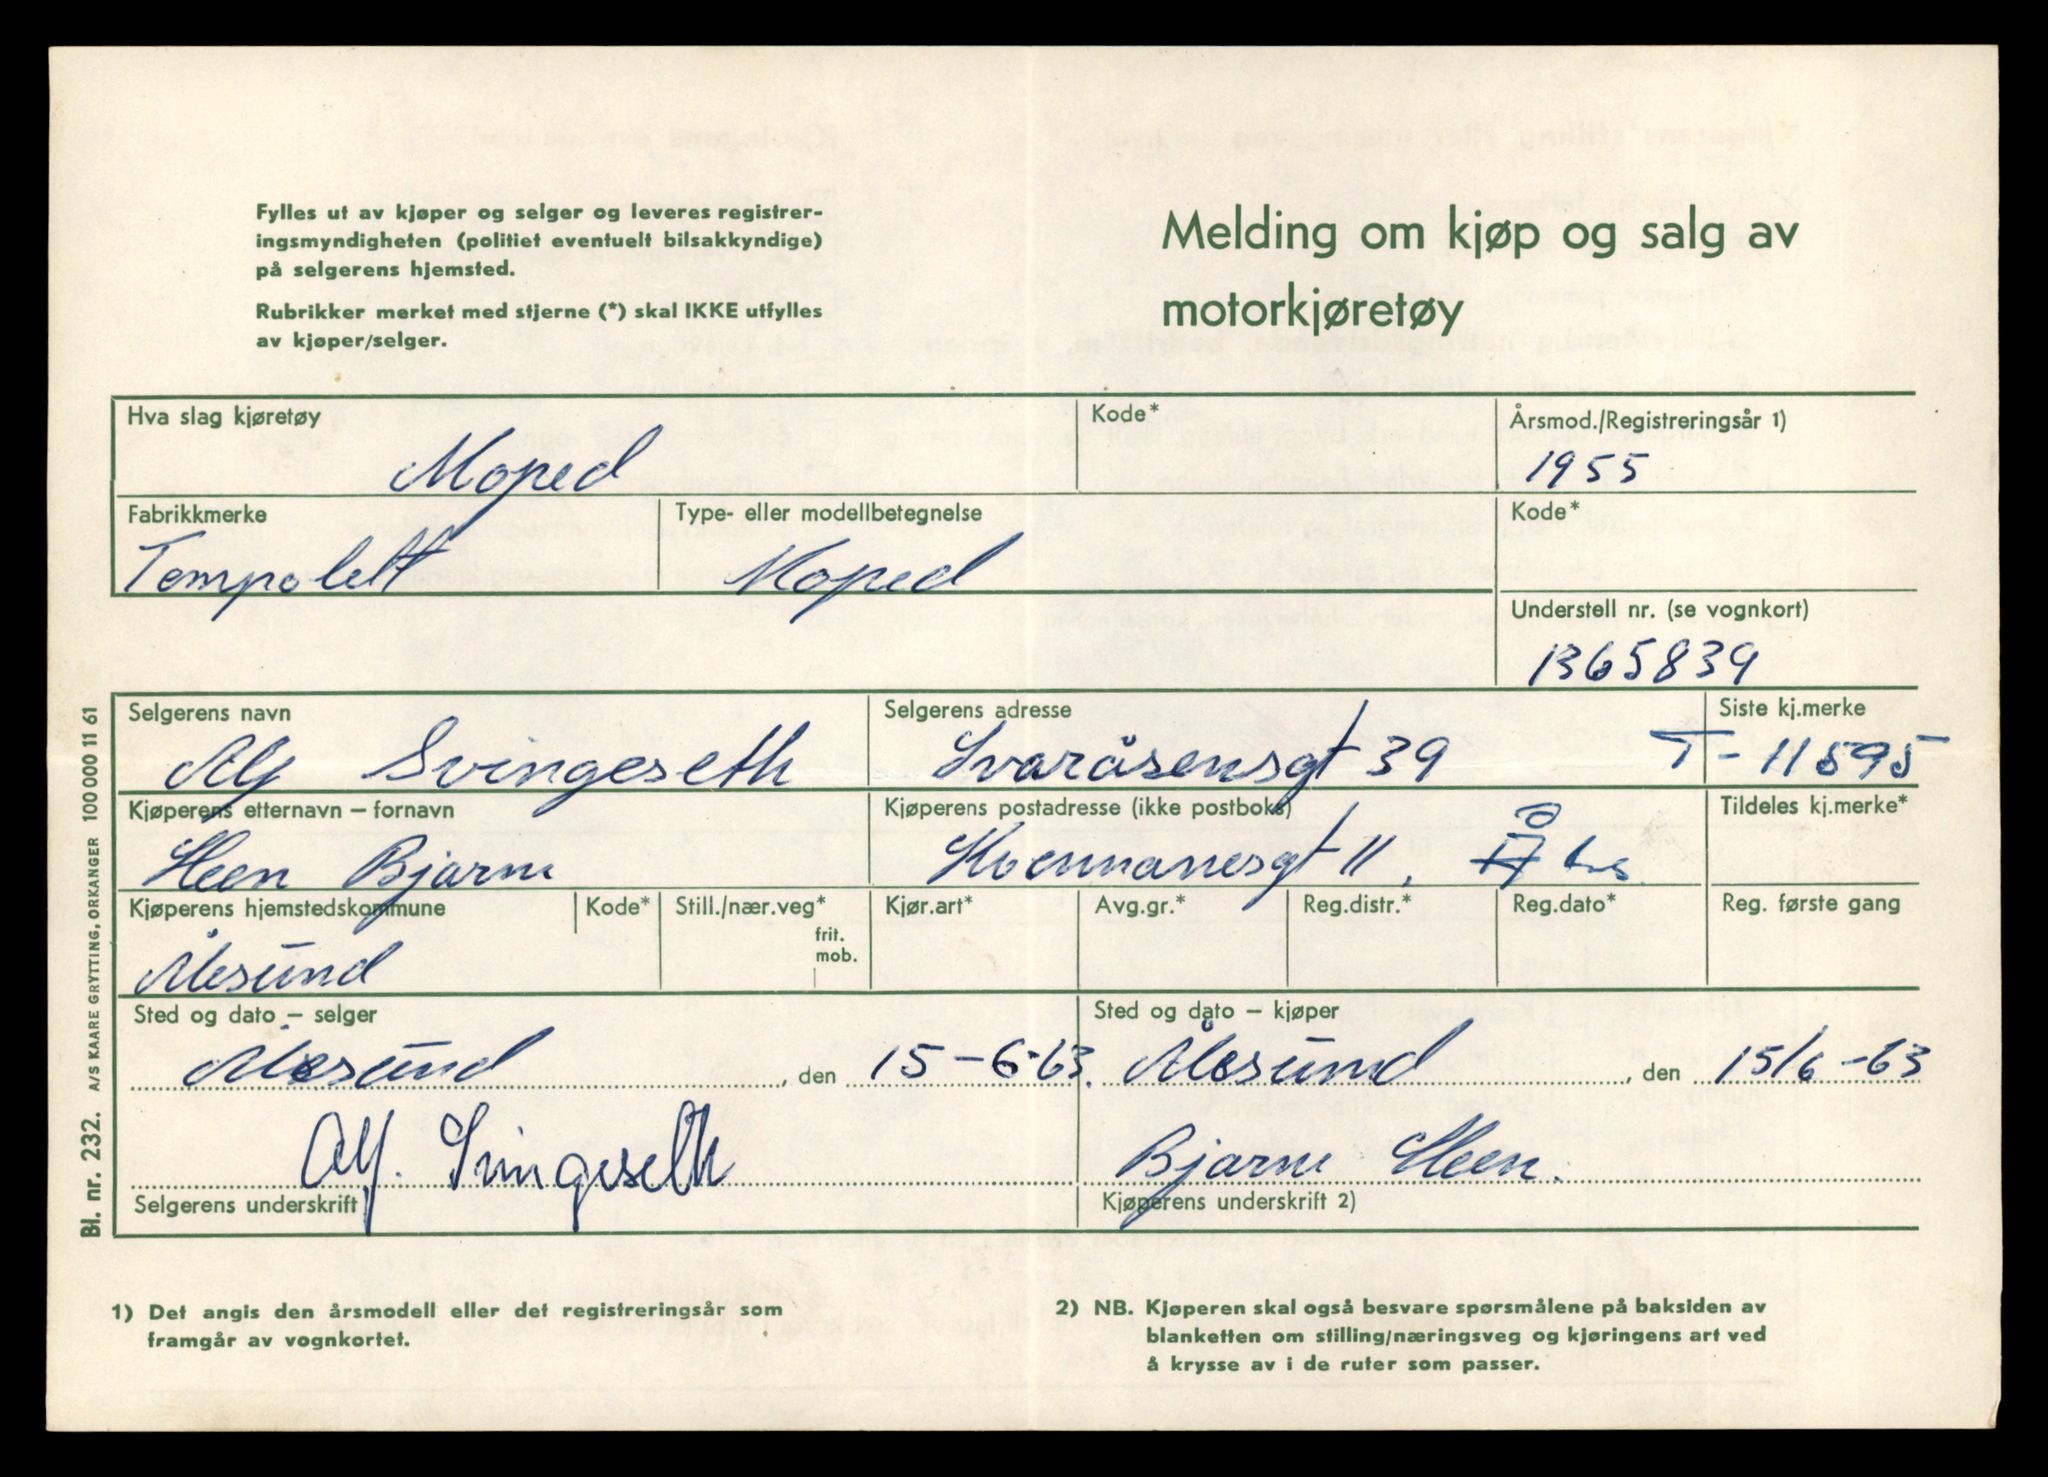 Fylles ut av kjøper og selger og leveres registrer-
ingsmyndigheten (politiet eventuelt bilsakkyndige)
på selgerens hjemsted.
Rubrikker merket med stjerne (*) skal IKKE utfylles
av kjøper/selger.
Melding om kjøp og salg av
motorkjøretøy
Hva slag kjøretøy
Moped
Kode*
Årsmod./Registreringsår 1)
1955
Fabrikkmerke
Tempolett
Type- eller modellbetegnelse
Moped
Kode*
Understell nr. (se vognkort)
1365839
Selgerens navn
Alf Svingeseth
Selgerens adresse
Svaråsensgt 39
Siste kj.merke
T-11595
Kjøperens etternavn – fornavn
Heen Bjarne
Kjøperens postadresse (ikke postboks)
11,
Tildeles kj.merke*
Kjøperens hjemstedskommune
Ålesund
Kode*
Still./nær.veg*
frit.
mob.
Kjør.art*
Avg.gr.*
Reg.distr.*
Reg.dato*
Reg. første gang
Sted og dato – selger
Ålesund, den 15-6-63.
Sted og dato – kjøper
Ålesund, den 15/6-63
Alf. Svingeseth
Selgerens underskrift
Bjarne Heen.
Kjøperens underskrift 2)
Bl. nr. 232. A/S KAARE GRYTTING, ORKANGER 100 000 11 61
1) Det angis den årsmodell eller det registreringsår som
framgår av vognkortet.
2) NB. Kjøperen skal også besvare spørsmålene på baksiden av
blanketten om stilling/næringsveg og kjøringens art ved
å krysse av i de ruter som passer.